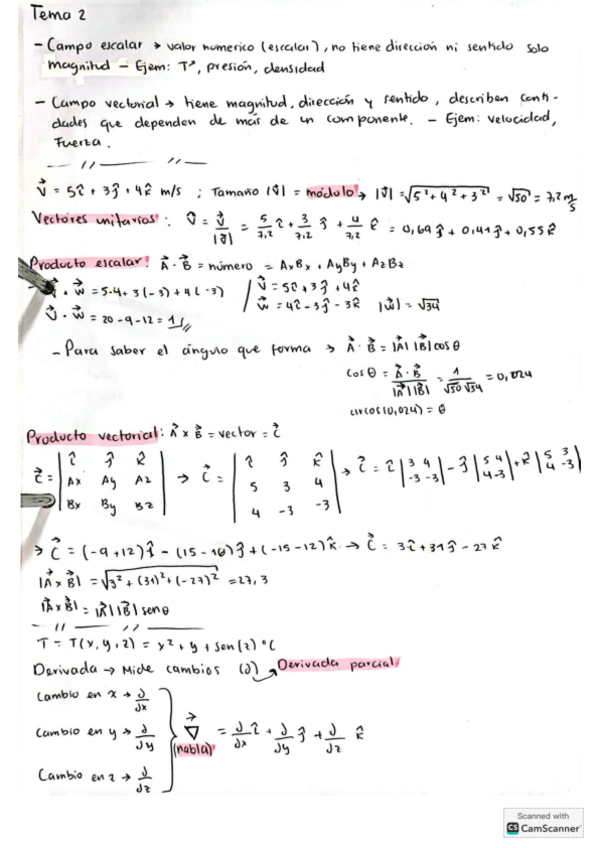 Tema 2
- Campo escalar → valor numerico (escalar), no tiene direccion ni sentido solo
magnitud - Ejem: Tª, presión, densidad
- Campo vectorial → tiene magnitud, dirección y sentido, describen canti-
dades que dependen de más de un componente. - Ejem: velocidad,
Fuerza.
V⃗ = 5î + 3ĵ + 4k̂ m/s ; Tamaño |V⃗| = módulo → |V⃗| = √(5² + 4² + 3²) = √50 = 7,2 m/s
Vectores unitarios: V̂ = V⃗/|V⃗| = 5/7,2 î + 3/7,2 ĵ + 4/7,2 k̂ = 0,69ĵ + 0,41ĵ + 0,55k̂
Producto escalar: A⃗ · B⃗ = número = AxBx + AyBy + AzBz
- V⃗ · W⃗ = 5·4 + 3(-3) + 4(-3) / V⃗ = 5î + 3ĵ + 4k̂
V⃗ · W⃗ = 20 - 9 - 12 = 1 / W⃗ = 4î - 3ĵ - 3k̂ |W⃗| = √34
- Para saber el ángulo que forma → A⃗ · B⃗ = |A⃗| |B⃗| cos θ
cos θ = A⃗ · B⃗ / |A⃗||B⃗| = 1 / √50 √34 = 0,024
arcos(0,024) = θ
Producto vectorial: A⃗ x B⃗ = vector = C⃗
C⃗ = | î ĵ k̂ | → C⃗ = | î ĵ k̂ | → C⃗ = î |3 4| - ĵ |5 4| + k̂ |5 3|
| Ax Ay Az | | 5 3 4 | |-3 -3| |4 -3| |4 -3|
| Bx By Bz | | 4 -3 -3 |
→ C⃗ = (-9+12)î - (15-16)ĵ + (-15-12)k̂ → C⃗ = 3î + 31ĵ - 27k̂
|A⃗ x B⃗| = √(3² + (31)² + (-27)²) = 27,3
|A⃗ x B⃗| = |A⃗||B⃗| sen θ
T = T(x, y, z) = x² + y + sen(z) °C
Derivada → Mide cambios (∂) → Derivada parcial
Cambio en x → ∂/∂x
Cambio en y → ∂/∂y
∇⃗ = ∂/∂x î + ∂/∂y ĵ + ∂/∂z k̂
(nabla)
Cambio en z → ∂/∂z
Scanned with
CS CamScanner